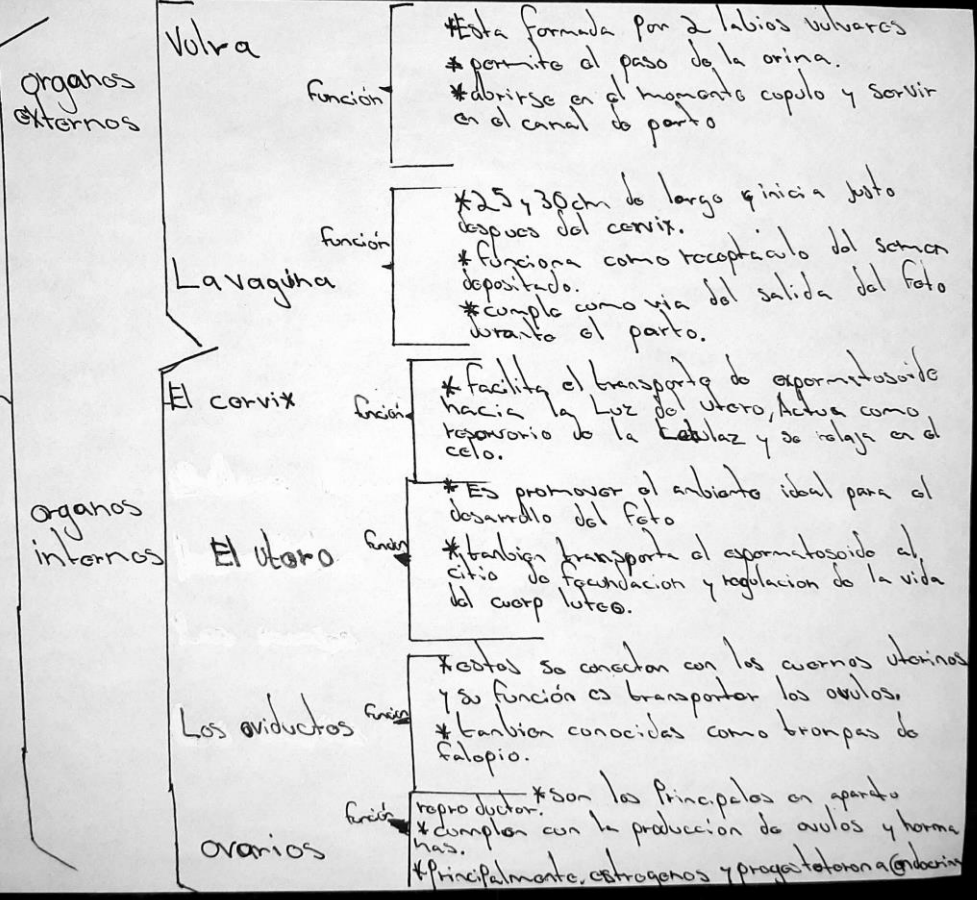 organos
externos
Vulva
función
*Esta formada por 2 labios vulvares
* permite el paso de la orina.
*abrirse en el momento copulo y servir
en el canal de parto
La vagina
función
*25 y 30cm de largo q inicia justo
despues del cervix.
*funciona como receptaculo del semen
depositado.
*cumple como via del salida del feto
durante el parto.
organos
internos
El cervix
función
* facilita el transporte de
hacia la Luz del utero, Actua como
de la y se relaja en el
celo.
El utero
función
* Es promover el ambiente ideal para el
desarrollo del feto
*tanbien transporta el espermatosoide al
citio de fecundacion y regulacion de la vida
del cuerp luteo.
Los oviductos
función
*estos se conectan con los cuernos uterinos
y su función es transporter los ovulos.
* tanbien conocidas como trompas de
falopio.
ovarios
función
*Son los Principales en
reproductor.
*cumplen con la produccion de ovulos y
*Principalmente, estrogenos y